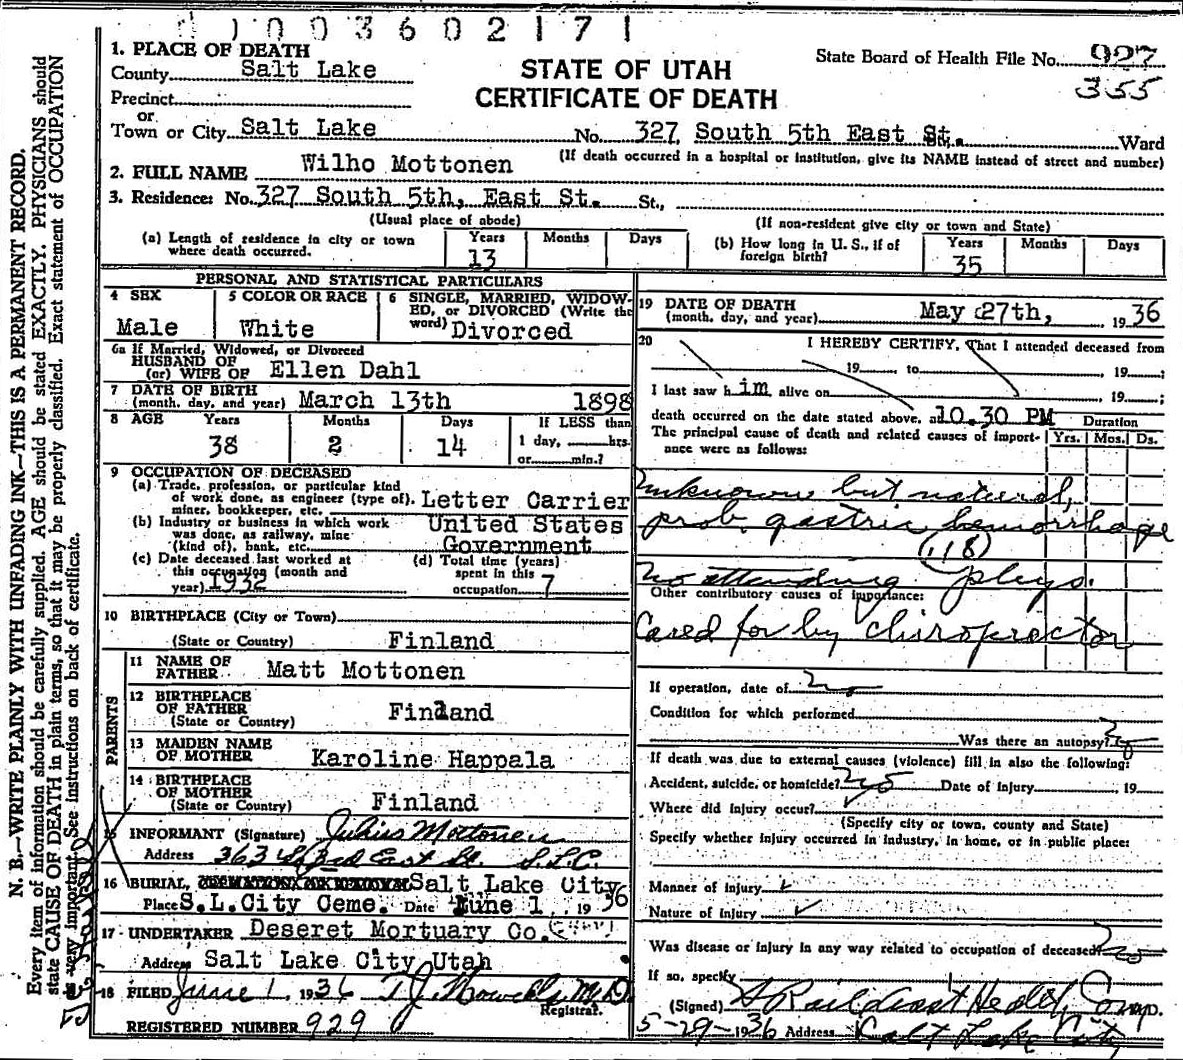 1003602171
1. PLACE OF DEATH
County Salt Lake
STATE OF UTAH
State Board of Health File No. 927
355
Precinct
CERTIFICATE OF DEATH
or
Town or City Salt Lake No. 327 South 5th East St. Ward
(If death occurred in a hospital or institution, give its NAME instead of street and number)
2. FULL NAME Wilho Mottonen
3. Residence: No. 327 South 5th, East St. St.,
(Usual place of abode) (If non-resident give city or town and State)
(a) Length of residence in city or town where death occurred. Years 13 Months Days
(b) How long in U. S., if of foreign birth? Years 35 Months Days
PERSONAL AND STATISTICAL PARTICULARS
4 SEX Male
5 COLOR OR RACE White
6 SINGLE, MARRIED, WIDOWED, or DIVORCED (Write the word) Divorced
6a If Married, Widowed, or Divorced
HUSBAND OF
(or) WIFE OF Ellen Dahl
7 DATE OF BIRTH
(month, day, and year) March 13th 1898
8 AGE Years 38 Months 2 Days 14 If LESS than 1 day, hrs. or min.?
9 OCCUPATION OF DECEASED
(a) Trade, profession, or particular kind
of work done, as engineer (type of),
miner, bookkeeper, etc. Letter Carrier
(b) Industry or business in which work
was done, as railway, mine
(kind of), bank, etc. United States Government
(c) Date deceased last worked at
this occupation (month and
year) 1932
(d) Total time (years)
spent in this
occupation 7
10 BIRTHPLACE (City or Town)
(State or Country) Finland
PARENTS
11 NAME OF FATHER Matt Mottonen
12 BIRTHPLACE OF FATHER
(State or Country) Finland
13 MAIDEN NAME OF MOTHER Karoline Happala
14 BIRTHPLACE OF MOTHER
(State or Country) Finland
15 INFORMANT (Signature) Julius Mottonen
Address 363 So 3rd East St. S.L.C.
16 BURIAL, Salt Lake City
Place S.L.City Ceme. Date June 1, 1936
17 UNDERTAKER Deseret Mortuary Co.
Address Salt Lake City Utah
18 FILED June 1, 1936 T J. Howells M.D.
Registrar.
REGISTERED NUMBER 929
19 DATE OF DEATH
(month, day, and year) May 27th, 1936
20 I HEREBY CERTIFY, That I attended deceased from
19 to , 19 ;
I last saw him alive on , 19 ;
death occurred on the date stated above, at 10.30 PM
The principal cause of death and related causes of importance were as follows:
Duration
Yrs. Mos. Ds.
Unknown but natural,
prob. gastric hemorrhage
(118)
No attending phys.
Other contributory causes of importance:
Cared for by chiropractor
If operation, date of no
Condition for which performed
Was there an autopsy? no
If death was due to external causes (violence) fill in also the following:
Accident, suicide, or homicide? no Date of Injury , 19
Where did injury occur?
(Specify city or town, county and State)
Specify whether injury occurred in industry, in home, or in public place:
Manner of injury
Nature of injury
Was disease or injury in any way related to occupation of deceased? no
If so, specify
(Signed)
5-29-1936 Address Salt Lake City
N. B.—WRITE PLAINLY WITH UNFADING INK—THIS IS A PERMANENT RECORD.
Every item of information should be carefully supplied. AGE should be stated EXACTLY. PHYSICIANS should
state CAUSE OF DEATH in plain terms, so that it may be properly classified. Exact statement of OCCUPATION
is very important. See instructions on back of certificate.